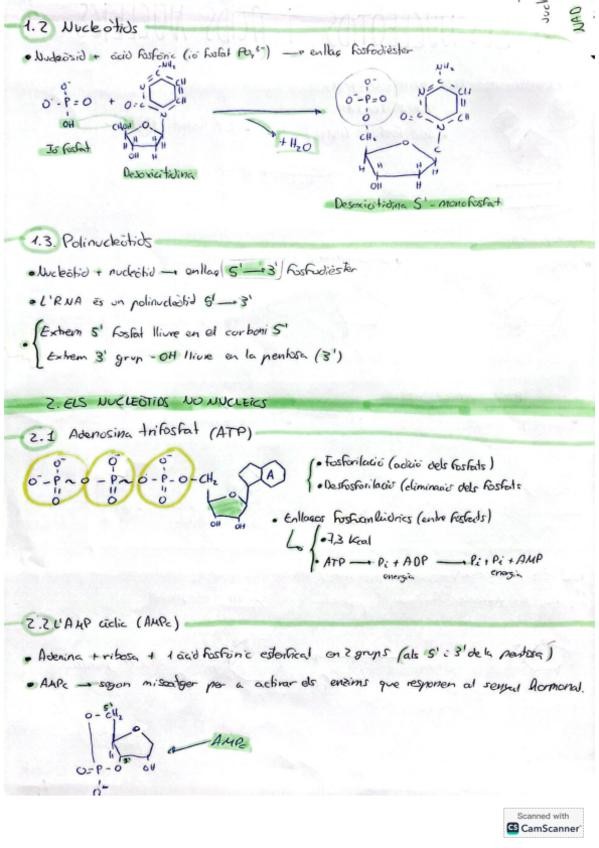 1.2 Nucleòtids
• Nucleòsid + àcid fosfòric (ió fosfat PO₄³⁻) → enllaç fosfodièster
Ió fosfat
Desoxicitidina
+ H₂O
Desoxicitidina 5'-monofosfat
1.3. Polinucleòtids
• Nucleòtid + nucleòtid → enllaç (5' → 3') fosfodièster
• L'RNA és un polinucleòtid 5' → 3'
• Extrem 5' fosfat lliure en el carboni 5'
Extrem 3' grup -OH lliure en la pentosa (3')
2. ELS NUCLEÒTIDS NO NUCLEICS
2.1 Adenosina trifosfat (ATP)
• Fosforilació (adició dels fosfats)
• Desfosforilació (eliminació dels fosfats
• Enllaços fosfoanhídrics (entre fosfats)
• 7,3 Kcal
• ATP → Pi + ADP → Pi + Pi + AMP
energia energia
2.2 L'AMP cíclic (AMPc)
• Adenina + ribosa + 1 àcid fosfòric esterificat en 2 grups (als 5' i 3' de la pentosa)
• AMPc → segon missatger per a activar els enzims que responen al senyal hormonal.
AMPc
Scanned with
CS CamScanner